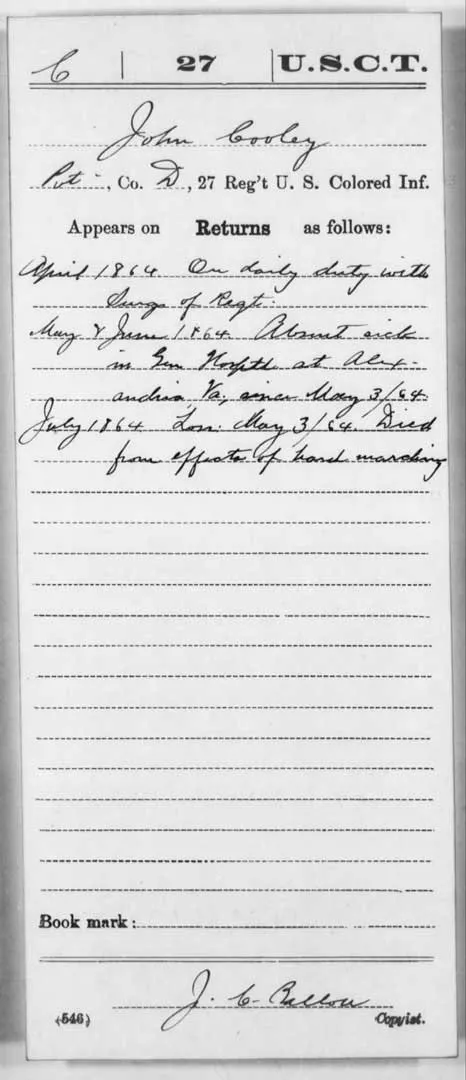 C | 27 | U.S.C.T.
John Cooley
Pvt, Co. D, 27 Reg't U. S. Colored Inf.
Appears on Returns as follows:
April 1864 On daily duty with
Surg of Regt.
May & June 1864 Absent sick
in Gen Hosptl at Alex-
andria, Va, since May 3/64.
July 1864 Loss May 3/64. Died
from effects of hard marching
Book mark:
J. C. Ballou
(546) Copyist.